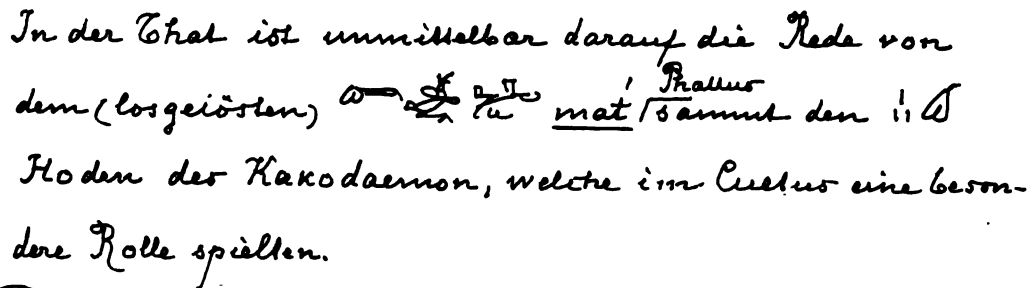 In der That ist unmittelbar darauf die Rede von
dem (losgelösten) mat Phallus sammt den
Hoden des Kakodaemon, welche im Cultus eine beson-
dere Rolle spielten.